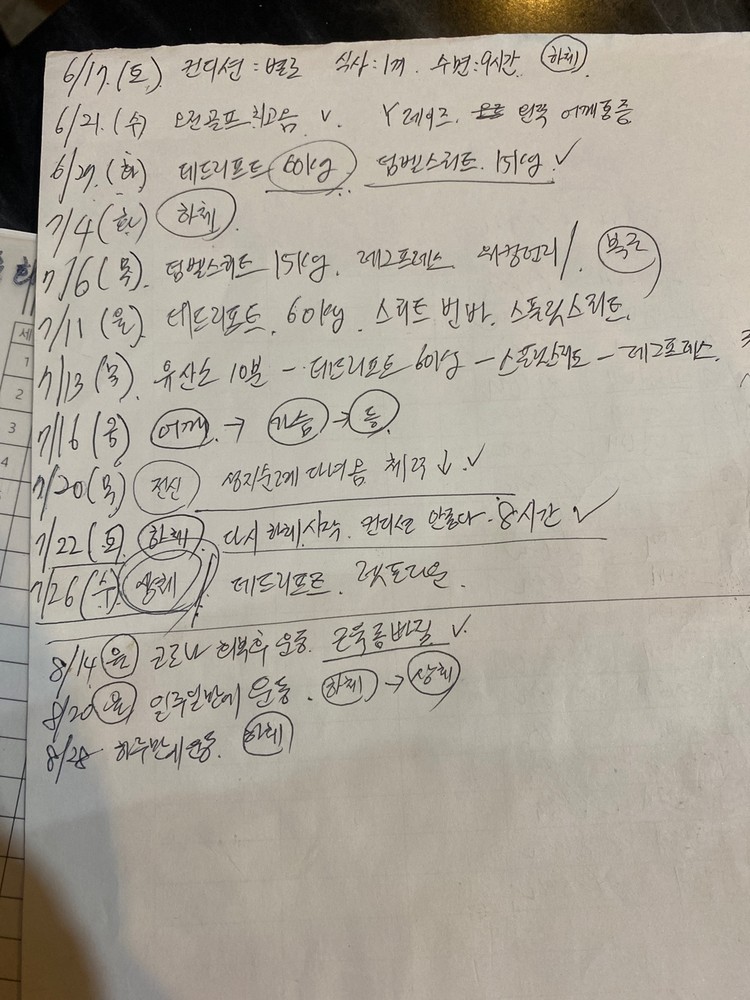 6/17.(토) 컨디션 : 별로 식사:1끼. 수면:9시간. 하체.
6/21.(수) 오전골프 치고옴 v. Y레이즈. 왼쪽 어깨통증
6/27.(화) 데드리프트 60kg 덤벨스쿼트. 15kg. ✓
7/4(화) 하체
7/6(목). 덤벨스쿼트 15kg. 레그프레스 워킹런지/. 복근
7/11(월) 데드리프트. 60kg. 스쿼트 번바. 스플릿스쿼트.
7/13(목). 유산소 10분 - 데드리프트 60kg - 스플릿스쿼트 - 레그프레스.
7/16(공) 어깨. → 가슴 → 등
7/20(목) 전신 성지순례 다녀옴 체력↓.✓
7/22(토) 하체. 다시 하체시작. 컨디션 안좋다. 8시간 ✓
7/26(수) 상체 데드리프트. 렛풀다운.
8/14(월) 코로나 회복후 운동. 근육통빠짐 v.
8/20 일주일만에 운동. 하체 → 상체
8/28 하루만에운동. 하체
세
1
2
3
4